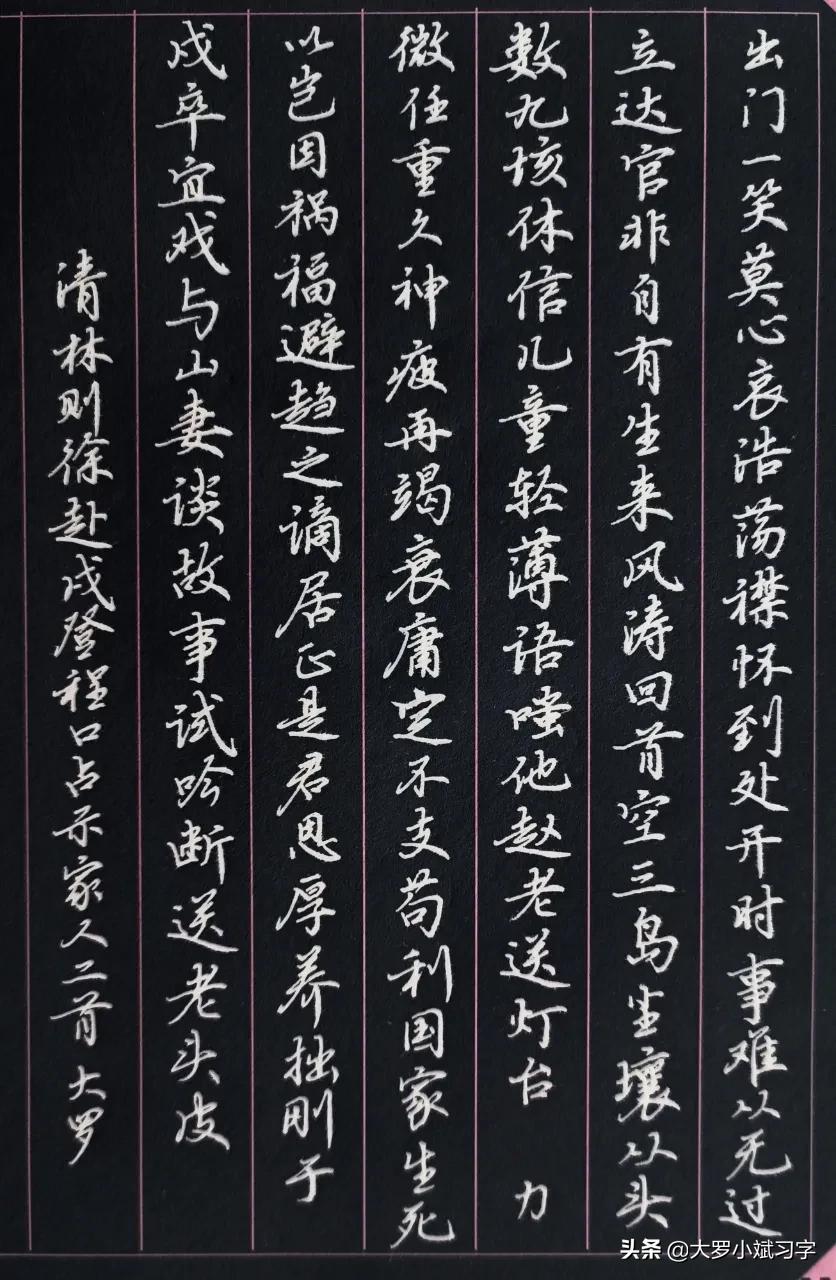 出门一笑莫心哀浩荡襟怀到处开时事难从无过
立达官非自有生来风涛回首空三岛尘壤从头
数九垓休信儿童轻薄语嗤他赵老送灯台 力
微任重久神疲再竭衰庸定不支苟利国家生死
以岂因祸福避趋之谪居正是君恩厚养拙刚于
戍卒宜戏与山妻谈故事试吟断送老头皮
清林则徐赴戍登程口占示家人二首 大罗
头条 @大罗小斌习字